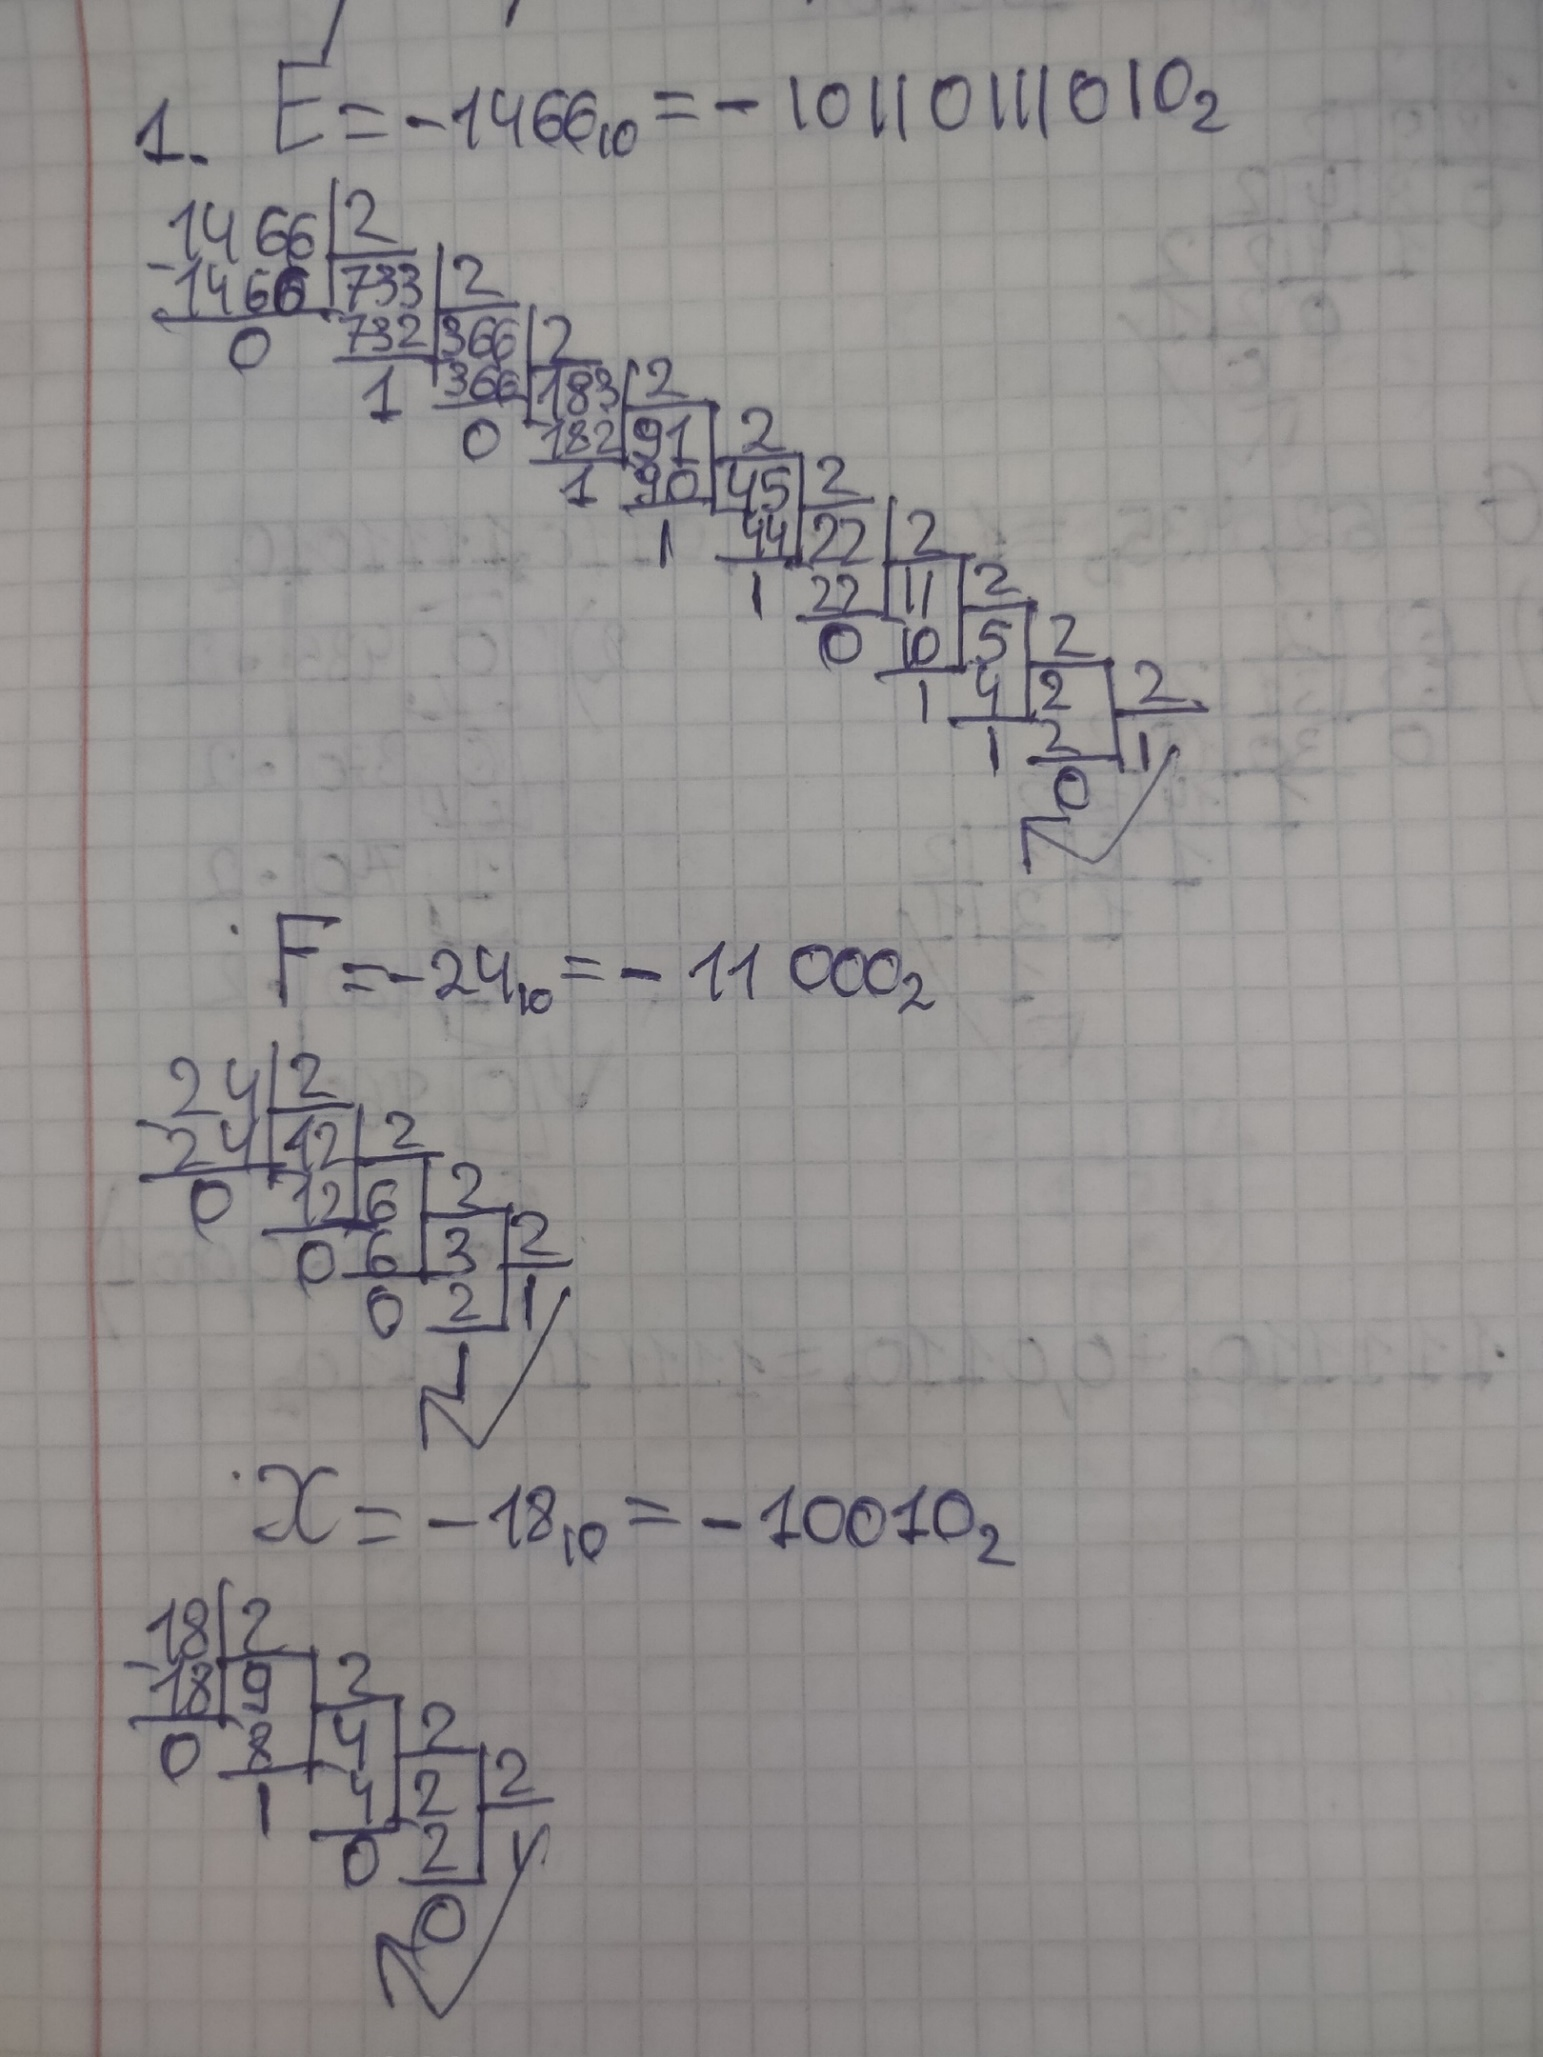 1. E = -1466₁₀ = - 10110111010₂
-1466 | 2
1466 | 733 | 2
0 732 | 366 | 2
1 366 | 183 | 2
0 182 | 91 | 2
1 90 | 45 | 2
1 44 | 22 | 2
1 22 | 11 | 2
0 10 | 5 | 2
1 4 | 2 | 2
1 2 | 1
0
F = -24₁₀ = - 11 000₂
-24 | 2
24 | 12 | 2
0 12 | 6 | 2
0 6 | 3 | 2
0 2 | 1
1
X = -18₁₀ = -10010₂
-18 | 2
18 | 9 | 2
0 8 | 4 | 2
1 4 | 2 | 2
0 2 | 1
0